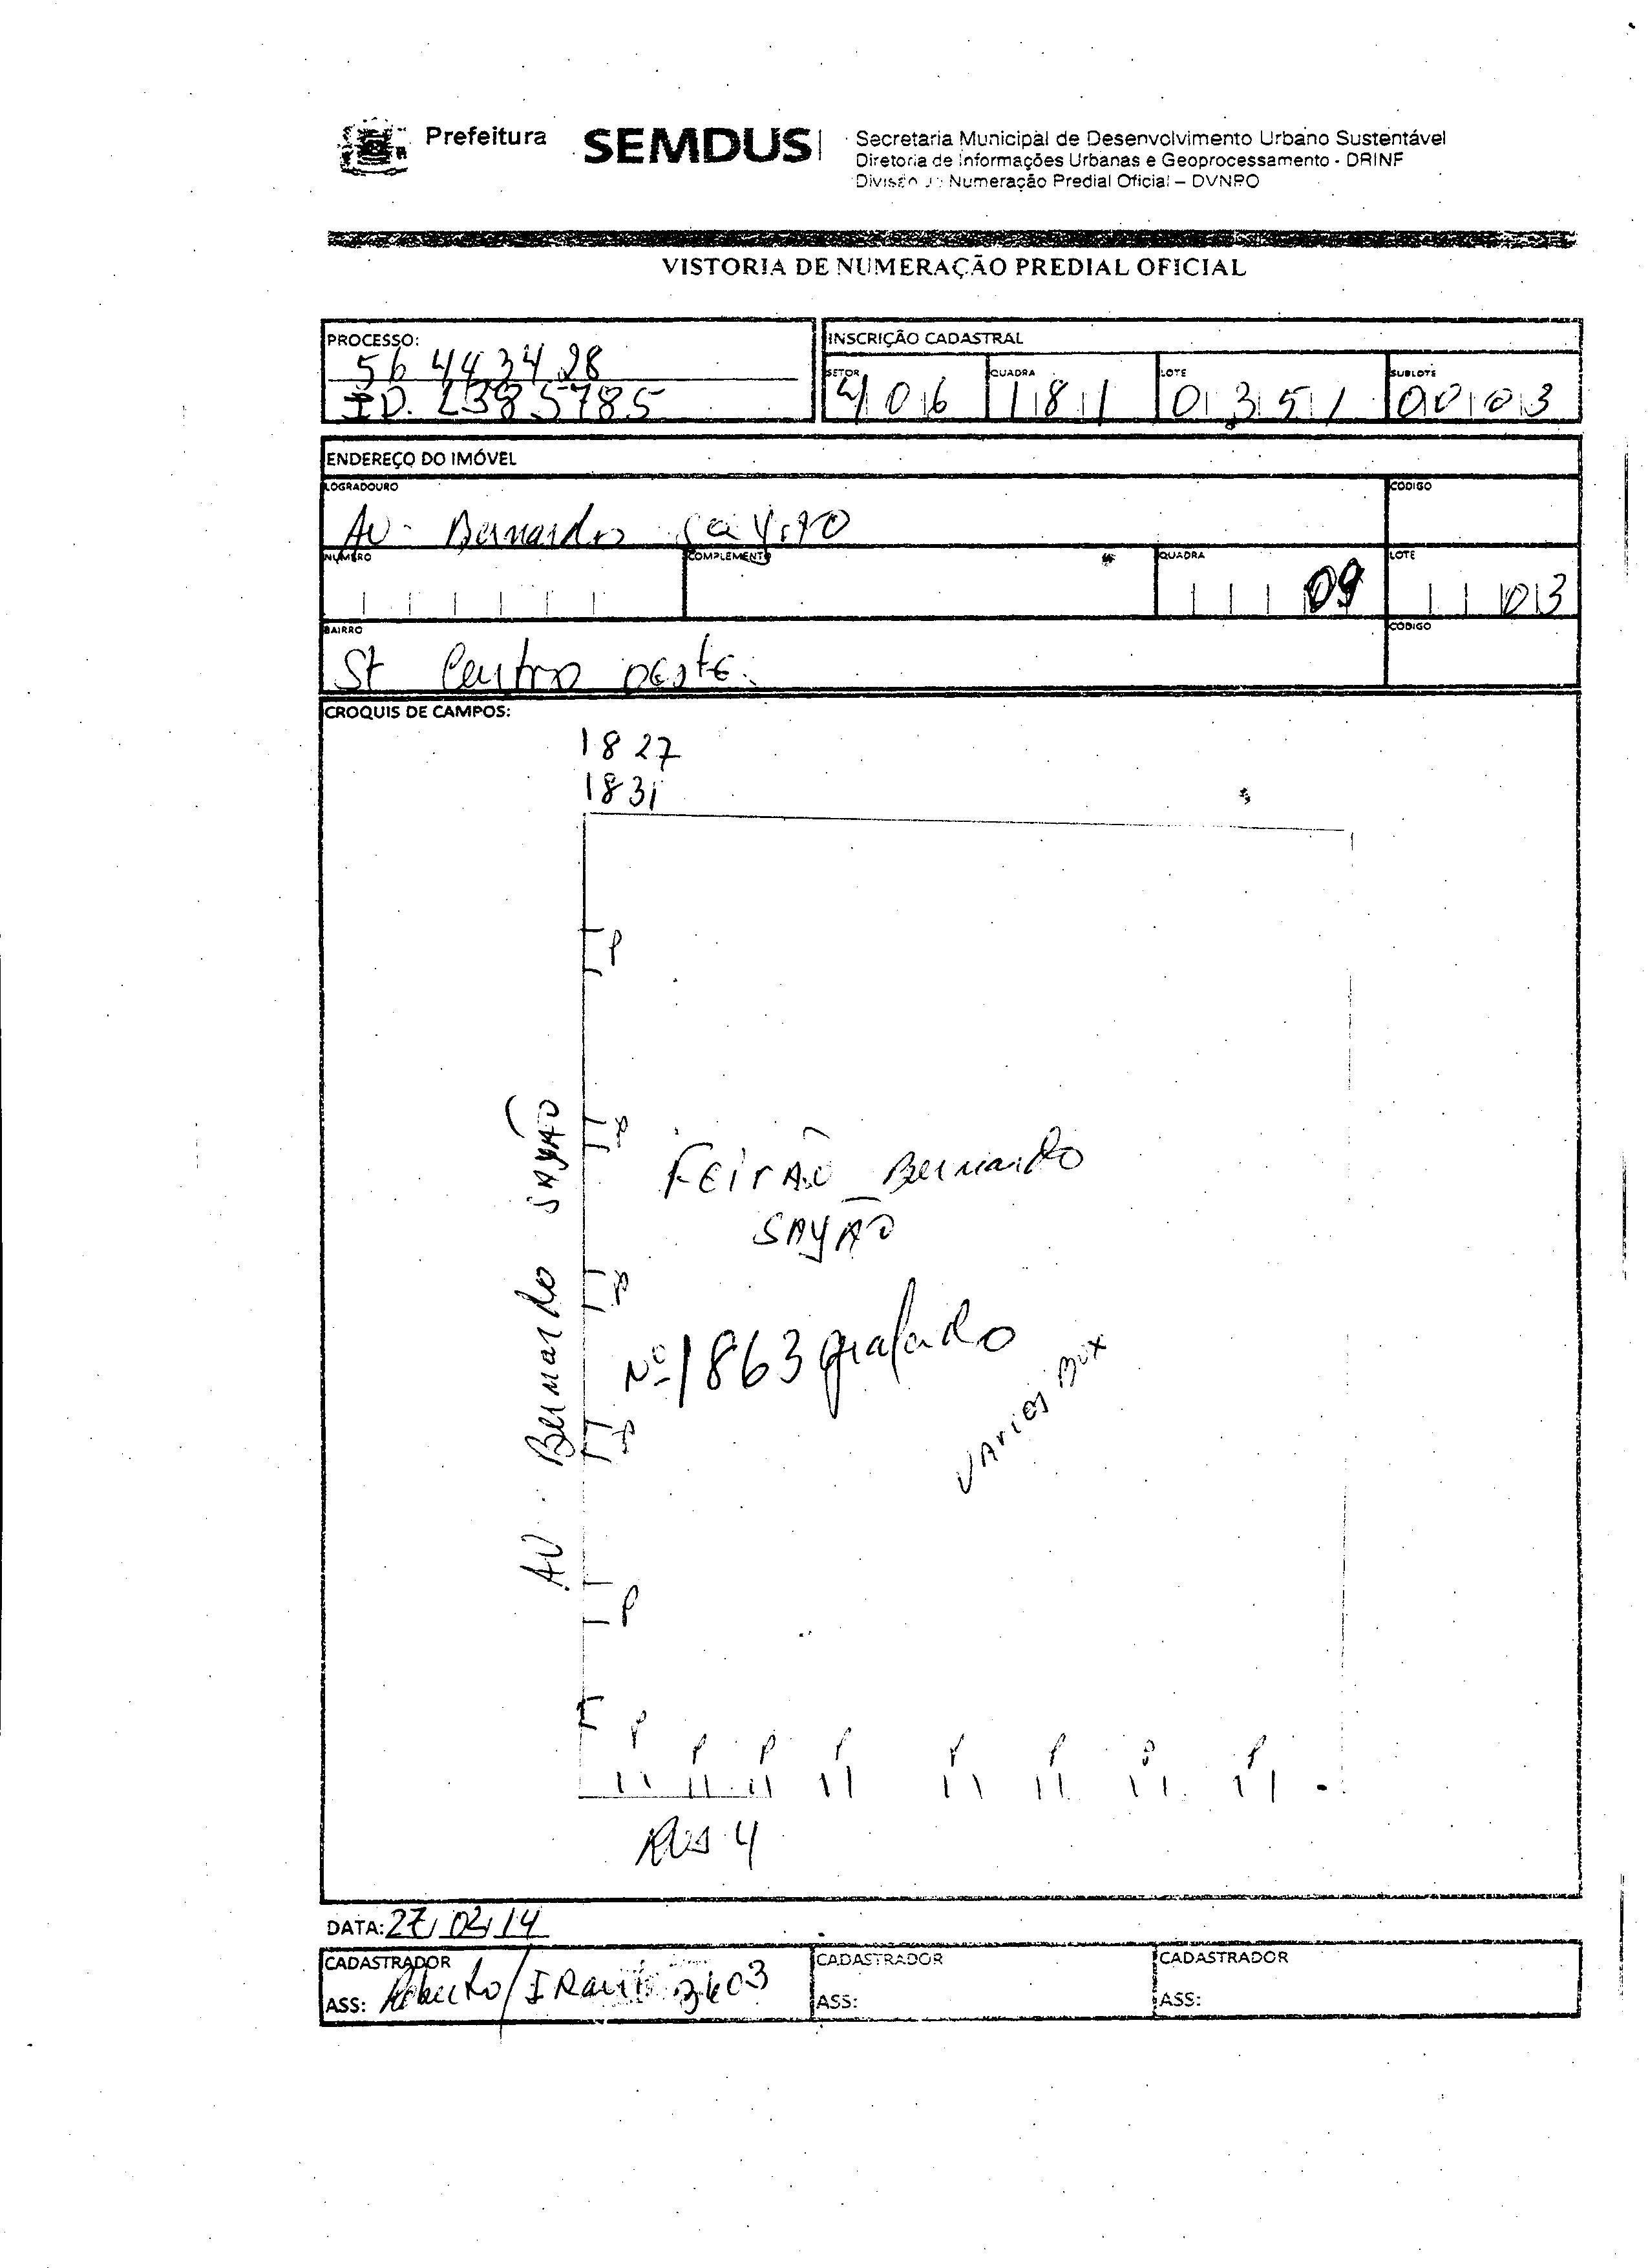 Prefeitura SEMDUS
Secretaria Municipal de Desenvolvimento Urbano Sustentável
Diretoria de Informações Urbanas e Geoprocessamento - DRINF
Divisão de Numeração Predial Oficial – DVNPO
VISTORIA DE NUMERAÇÃO PREDIAL OFICIAL
PROCESSO:
56443428
ID. 2385785
INSCRIÇÃO CADASTRAL
SETOR QUADRA LOTE SUBLOTE
406 181 0351 0003
ENDEREÇO DO IMÓVEL
LOGRADOURO CODIGO
Av. Bernardo Sayão
NUMERO COMPLEMENTO QUADRA LOTE
09 03
BAIRRO CODIGO
St Centro oeste.
CROQUIS DE CAMPOS:
1827
1831
P
P
FEIRÃO Bernardo
SAYÃO
P
Nº 1863 grafado
VARIOS BOX
P
AV. Bernardo SAYÃO
P
P P P P P P P P
RUA 4
DATA: 27/02/14
CADASTRADOR CADASTRADOR CADASTRADOR
ASS: Roberto/ 3403 ASS: ASS: